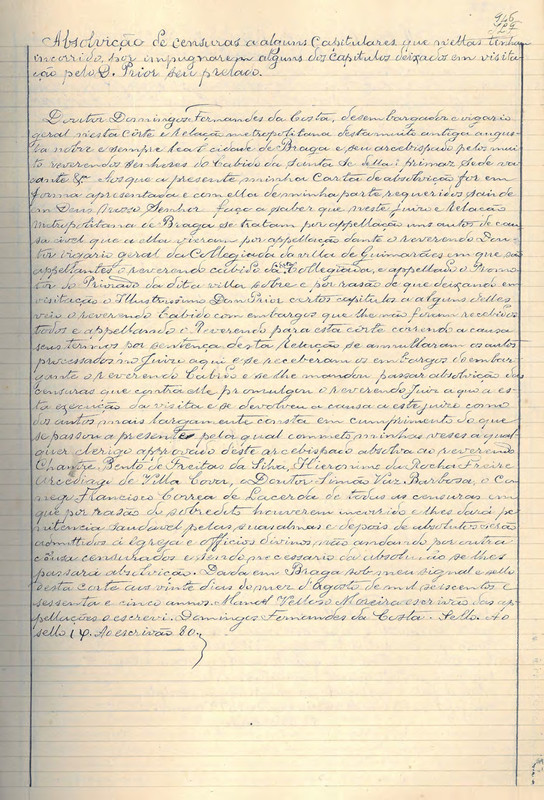 946
Absolvição de censuras a alguns Capitulares que n'ellas tinham
incorrido, por impugnarem alguns dos Capitulos deixados em visita-
ção pelo D. Prior seu prelado.
Doutor Domingos Fernandes da Costa, desembargador e vigario
geral n'esta Côrte e Relação metropolitana desta muito antiga augus-
ta nobre e sempre leal cidade de Braga e seu arcebispado pelos mui-
to reverendos Senhores do Cabido da Santa Sé della: primaz Sede va-
cante &. Aos que a presente minha Carta de absolvição fôr em
forma apresentada e com ella de minha parte requeridos saude
em Deus Nosso Senhor faço a saber que neste juizo e Relação
metropolitana de Braga se tratam por appellação uns autos de cau-
sa civel que a ella vieram por appellação dante o reverendo Dou-
tor vigario geral da Collegiada da villa de Guimarães em que são
appellantes o reverendo cabido da dita Collegiada, e appellado o Promo-
tor do Priorado da dita villa sobre e por rasão de que deixando em
visitação o Illustrissimo Dom Prior certos capitulos a alguns delles
veio o reverendo Cabido com embargos que lhe não foram recebidos
todos e appellando o Reverendo para esta côrte correndo a causa
seus termos por sentença desta Relação se annullaram os autos
processados no Juizo aqui e se receberam os embargos do embar-
gante o reverendo Cabido e se lhe mandou passar absolvição das
censuras que contra elle promulgou o reverendo Juiz a quo a es-
ta execução da visita e se devolveu a causa a este juizo como
dos autos mais largamente consta em cumprimento do que
se passou a presente pela qual commeto minhas vezes a qual-
quer clerigo approvado deste arcebispado absolva ao reverendo
Chantre Bento de Freitas da Silva, Hieronimo da Rocha Freire
Arcediago de Villa Cova, o Doutor Simão Vaz Barbosa, o Co-
nego Francisco Correa de Lacerda de todas as censuras em
que por rasão do sobredito houverem incorrido e lhes dará pe-
nitencia saudavel pelas suas almas e depois de absolutos serão
admittidos á egreja e officios divinos não andando por outra
cousa censurados e sendo necessario da absolvição se lhes
passará absolvição. Dada em Braga sob meu signal e sello
desta corte aos vinte dias do mez d'Agosto de mil seiscentos e
sessenta e cinco annos. Manoel Velloso Moreira escrivão das ap-
pellações o escrevi. Domingos Fernandes da Costa. Sello. Ao
sello 14. Ao escrivão 80.